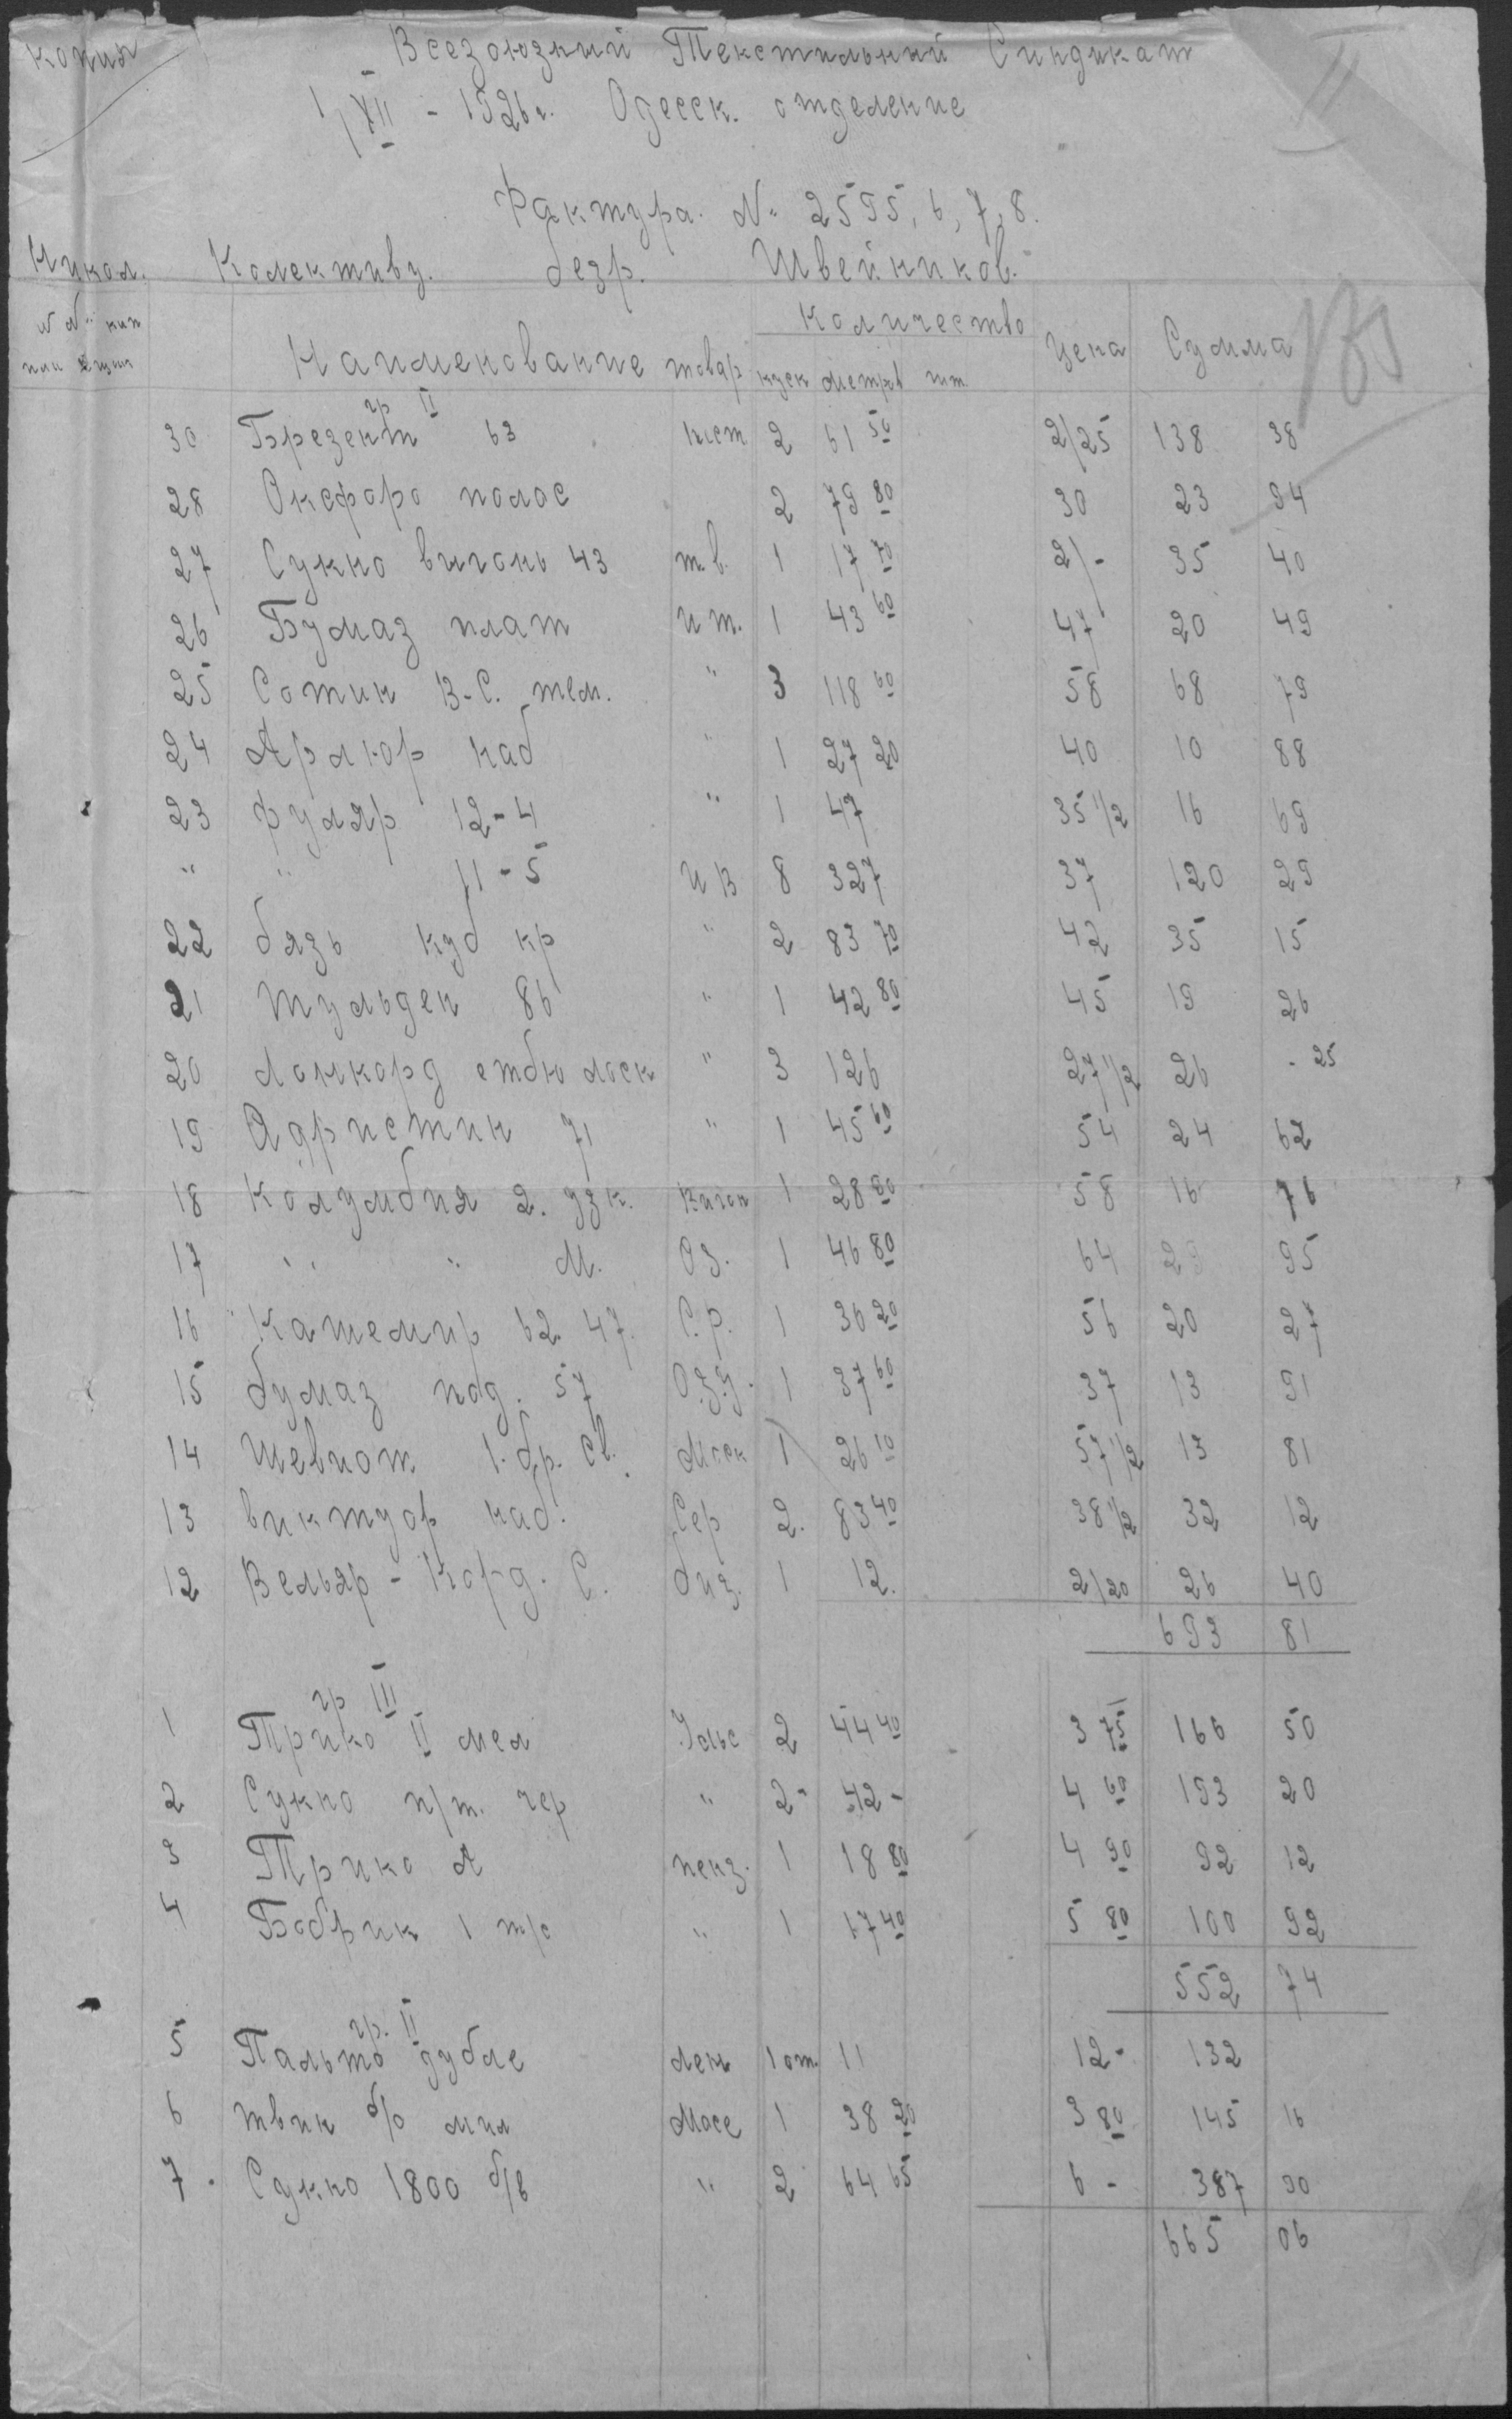 копия
Всезоюзний Текстильний Синдикат
1/XII - 1926 г. Одесск. отделение
Фактура. № 2595, 6, 7, 8.
Никол. Колективу. безр. Швейников.
II
Наименование товар Количество Цена Сумма
куск метров шт
гр II
30 Брезент 63 2 61 50 2/25 138 38
28 Оксфорд полос 2 79 80 30 23 94
27 Сукно вигонь 43 т.в. 1 17 70 2/- 35 40
26 Бумаз плат и т. 1 43 60 47 20 49
25 Сотин В-С. тем. " 3 118 60 58 68 79
24 Армюр наб " 1 27 20 40 10 88
23 фуляр 12-4 " 1 47 35 1/2 16 69
" " 11-5 и В 8 327 37 120 29
22 бязь куб кр " 2 83 70 42 35 15
21 тульден 86 " 1 42 80 45 19 26
20 Лонкорд " 3 126 27 1/2 26 - 25
19 Адристин 71 " 1 45 60 54 24 62
18 Колумбия 2. узк. Вигон 1 28 90 58 16 76
17 " " М. Оз. 1 46 80 64 29 95
16 Кашемир 62 47. С.р. 1 36 20 56 20 27
15 бумаз под. 57 1 37 60 37 13 91
14 Шевиот. 1. бр. св. Моск 1 26 10 57 1/2 13 81
13 виктуар наб. Сер 2. 83 40 38 1/2 32 12
12 Вельвр - Корд. С. 1 12. 2/20 26 40
693 81
гр III
1 Трико II мел Ульс 2 44 40 3 75 166 50
2 Сукно п/т. чер " 2- 42- 4 60 193 20
3 Трико А пенз. 1 18 80 4 90 92 12
4 Бобрик 1 т/с " 1 17 40 5 80 100 92
552 74
гр. II
5 Пальто дубле лен 1 от. 11 12- 132
6 твин б/о мил Мосс 1 38 20 3 80 145 16
7. Сукно 1800 б/в " 2 64 65 6 - 387 90
665 06